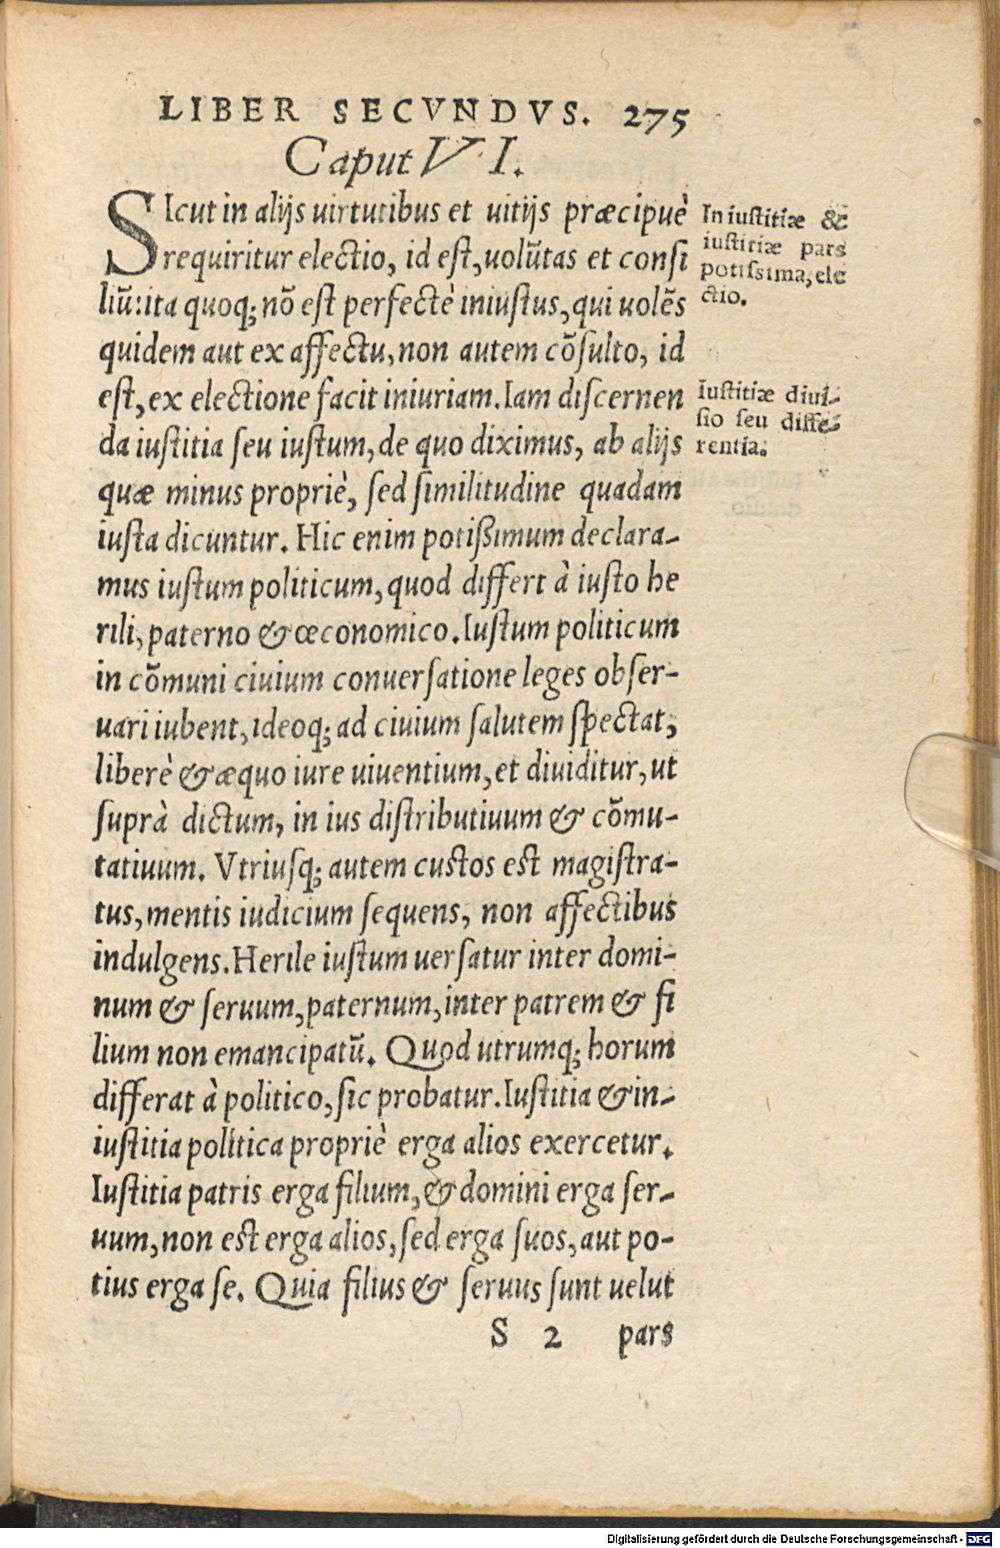 LIBER SECVNDVS. 275
Caput VI.
SIcut in alijs uirtutibus et uitijs præcipuè
requiritur electio, id est, uolũtas et consi
liũ: ita quoq; nõ est perfectè iniustus, qui uolẽs
quidem aut ex affectu, non autem cõsulto, id
est, ex electione facit iniuriam. Iam discernen
da iustitia seu iustum, de quo diximus, ab alijs
quæ minus propriè, sed similitudine quadam
iusta dicuntur. Hic enim potißimum declara-
mus iustum politicum, quod differt à iusto he
rili, paterno & œconomico. Iustum politicum
in cõmuni ciuium conuersatione leges obser-
uari iubent, ideoq; ad ciuium salutem spectat,
liberè & æquo iure uiuentium, et diuiditur, ut
suprà dictum, in ius distributiuum & cõmu-
tatiuum. Vtriusq; autem custos est magistra-
tus, mentis iudicium sequens, non affectibus
indulgens. Herile iustum uersatur inter domi-
num & seruum, paternum, inter patrem & fi
lium non emancipatũ. Quod utrumq; horum
differat à politico, sic probatur. Iustitia & in-
iustitia politica propriè erga alios exercetur.
Iustitia patris erga filium, & domini erga ser-
uum, non est erga alios, sed erga suos, aut po-
tius erga se. Quia filius & seruus sunt uelut
S 2 pars
In iustitiæ &
iustitiæ pars
potissima, ele
ctio.
Iustitiæ diui-
sio seu diffe-
rentia.
Digitalisierung gefördert durch die Deutsche Forschungsgemeinschaft - DFG